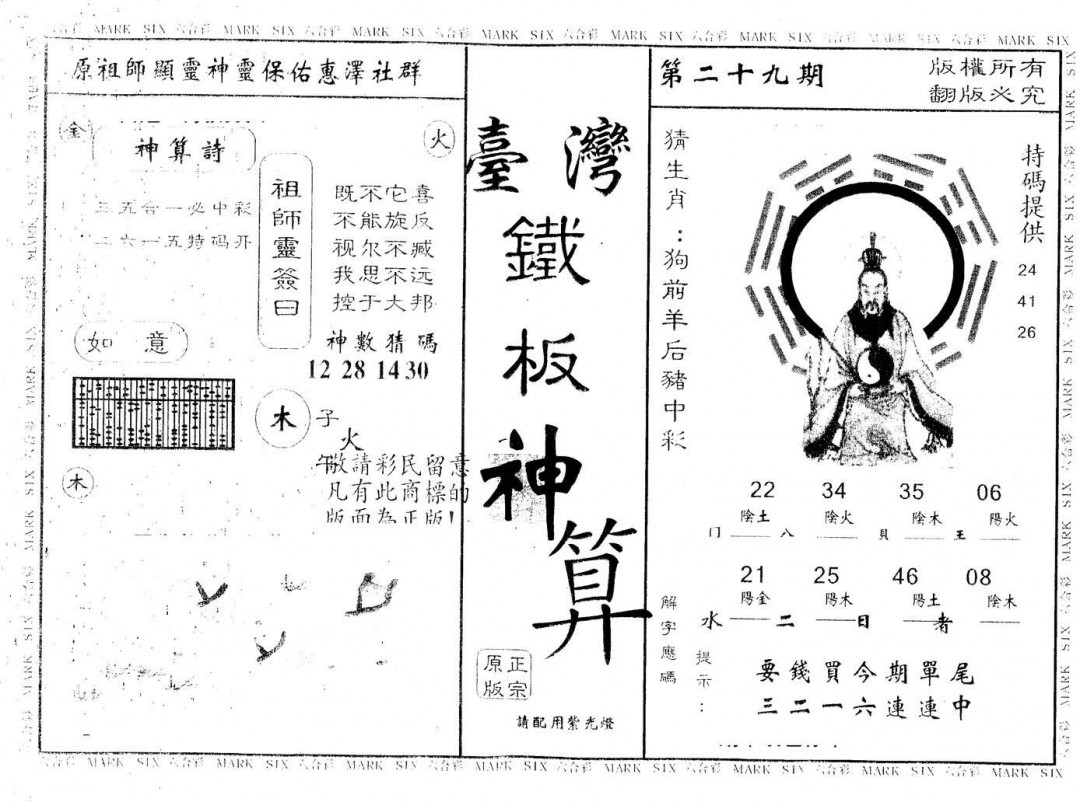 六合彩 MARK SIX 六合彩 MARK SIX 六合彩 MARK SIX 六合彩 MARK SIX 六合彩 MARK SIX 六合彩 MARK SIX 六合彩 MARK SIX 六合彩 MARK SIX
原祖師顯靈神靈保佑惠澤社群
金
神算詩
火
三五合一必中彩
二六一五特码开
祖師靈簽曰
既不它喜
不能旋反
视尔不臧
我思不远
控于大邦
如意
神數猜碼
12 28 14 30
木
子
火
午
敬請彩民留意
凡有此商標的
版面為正版!
木
臺灣
鐵
板
神
算
正宗
原版
請配用紫光燈
第二十九期
版權所有
翻版必究
猜生肖:狗前羊后豬中彩
持碼提供
24
41
26
22 34 35 06
陰土 陰火 陰木 陽火
门 八 貝 王
21 25 46 08
陽金 陽木 陽土 陰木
水 二 日 者
解字應碼
提示:
要錢買今期單尾
三二一六連連中
六合彩 MARK SIX 六合彩 MARK SIX 六合彩 MARK SIX 六合彩 MARK SIX 六合彩 MARK SIX 六合彩 MARK SIX 六合彩 MARK SIX 六合彩 MARK SIX